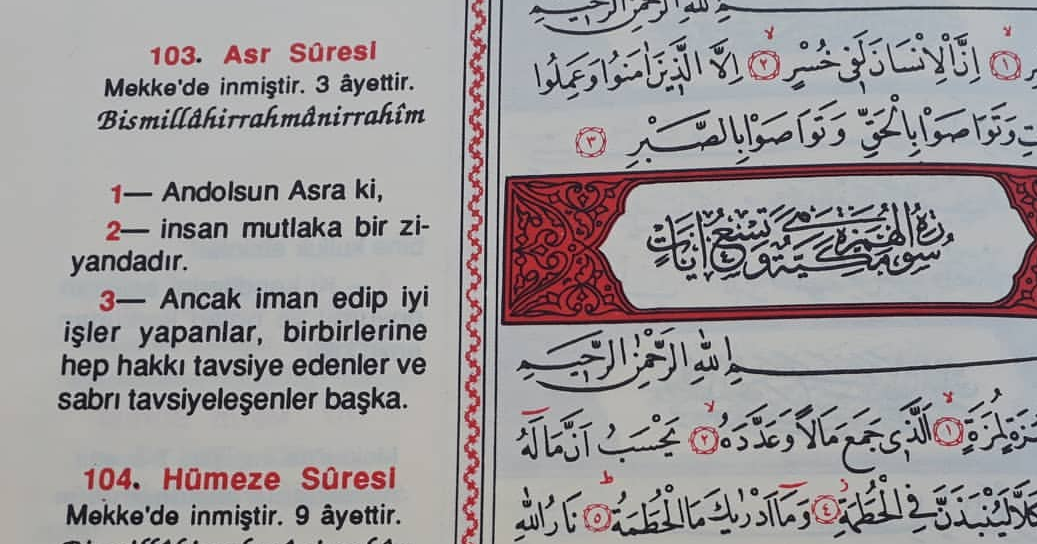 103. Asr Sûresi
Mekke'de inmiştir. 3 âyettir.
Bismillâhirrahmânirrahîm
1— Andolsun Asra ki,
2— insan mutlaka bir zi-
yandadır.
3— Ancak iman edip iyi
işler yapanlar, birbirlerine
hep hakkı tavsiye edenler ve
sabrı tavsiyeleşenler başka.
104. Hümeze Sûresi
Mekke'de inmiştir. 9 âyettir.
الله الرحمن الرحيم
١ اِنَّ الْاِنْسَانَ لَفٖى خُسْرٍ ٢ اِلَّا الَّذٖينَ اٰمَنُوا وَعَمِلُوا
وَتَوَاصَوْا بِالْحَقِّ وَتَوَاصَوْا بِالصَّبْرِ ٣
سُورَةُ الْهُمَزَةِ مَكِّيَّةٌ وَهِىَ تِسْعُ اٰيَاتٍ
اللهِ الرَّحْمٰنِ الرَّحٖيمِ
لُمَزَةٍ ١ اَلَّذٖى جَمَعَ مَالًا وَعَدَّدَهُ ٢ يَحْسَبُ اَنَّ مَالَهُ
كَلَّا لَيُنْبَذَنَّ فِى الْحُطَمَةِ ٤ وَمَا اَدْرٰيكَ مَا الْحُطَمَةُ ٥ نَارُ اللهِ